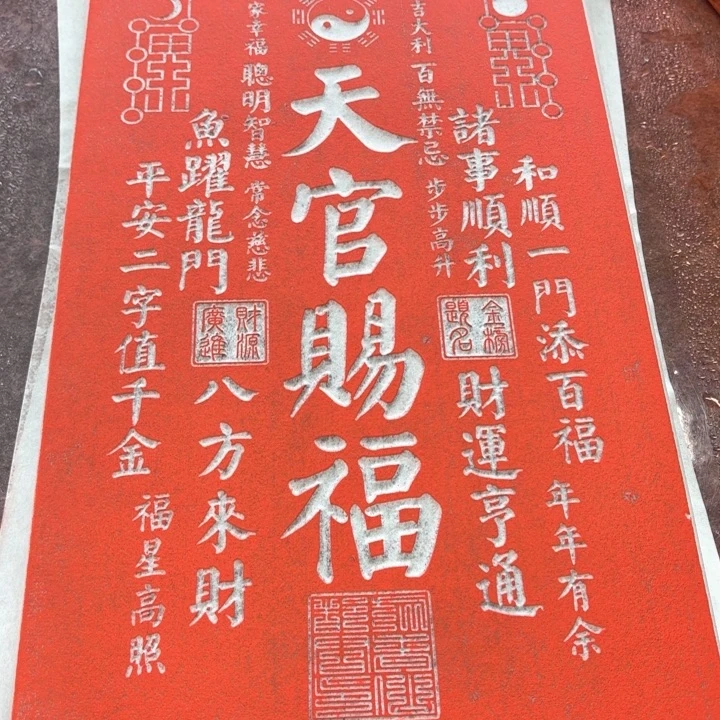 和順一門添百福 年年有余
諸事順利
金榜
題名
財運亨通
吉大利 百無禁忌 步步高升
天官賜福
家幸福 聰明智慧 常念慈悲
魚躍龍門
財源
廣進
八方來財
平安二字值千金 福星高照